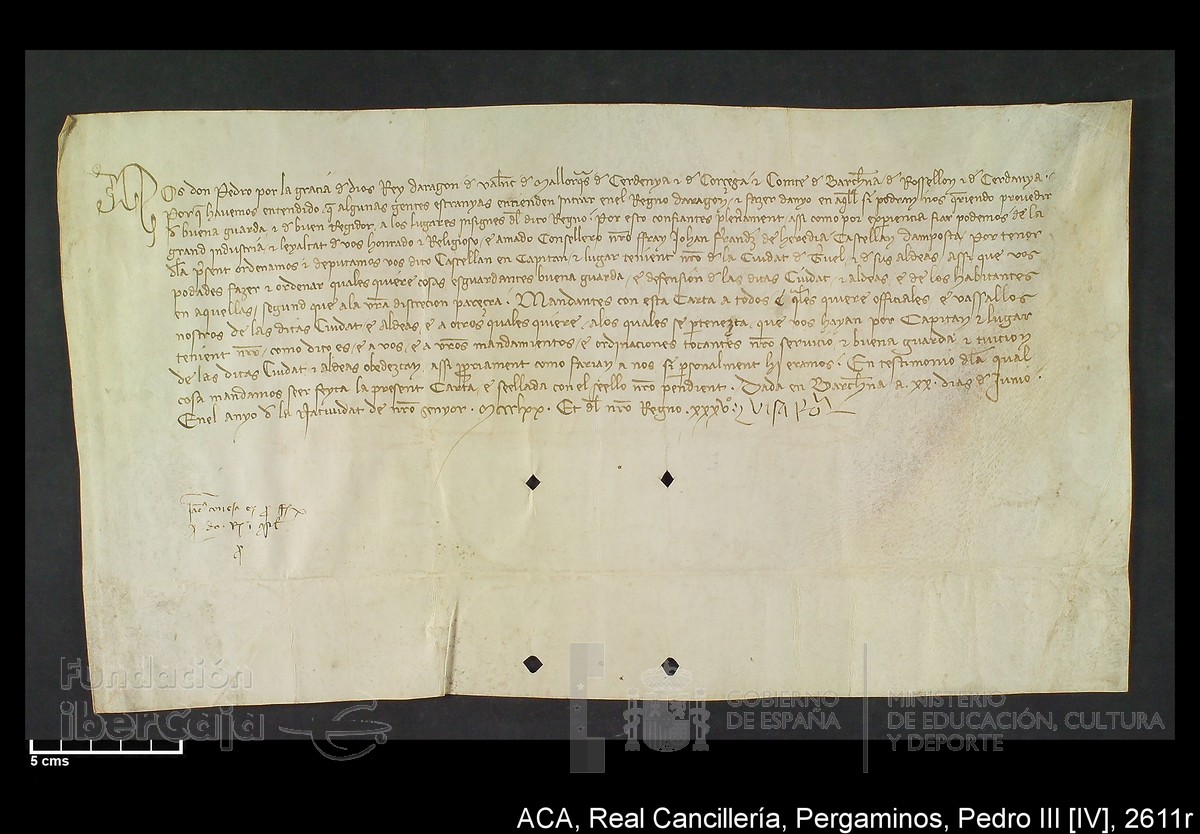 Nos don Pedro por la gracia de dios Rey daragon de Val̃nc de Mallorq̃s de Cerdenya ⁊ de Corcega ⁊ Comte de Barchña de Rossellon ⁊ de Cerdanya.
Por q̃ havemos entendido, q̃ algunas gentes estranyas entienden intrar enel Regno daragon, ⁊ fazer danyo en aq̃ll si podran nos q̃riendo provedir
de buena guarda, ⁊ d buen Regidor, a los lugares insignes dl dito Regno. Por esto confiantes plenament, assi como por exp̃iencia fiar podemos de la
grand industria ⁊ lexaltat d vos honrado ⁊ Religioso, e amado Consellero nr̃o ffray Johan Ferrandz de heredia Castellan damposta, por tenor
dla p̃sent ordenamos ⁊ deputamos vos dito Castellan en Capitan ⁊ lugar tenient nr̃o de la Ciudat de T̃uel ⁊ de sus aldeas, assi que vos
podades fazer ⁊ ordenar quales quiere cosas esguardantes buena guarda, e defension d las ditas Ciudat, ⁊ aldeas, e de los habitantes
en aquellas, segund que a la vr̃a discrecion parecra. Mandantes con esta Carta a todos e q̃les quiere officiales e vassallos
nostros de las ditas Ciudat e aldeas, e a otros quales quiere, a los quales se p̃tenezca, que vos hayan por Capitan ⁊ lugar
tenient nr̃o, como dito es, e a vos, e a vr̃os mandamientos, e ordinaciones tocantes nr̃o servicio ⁊ buena guarda ⁊ tuicion
de las ditas Ciudat ⁊ aldeas obedezcan, assi p̃priament como farian a nos si p̃sonalment hi eramos. En testimonio dla qual
cosa mandamos seer feyta la present Carta, e siellada con el siello nr̃o pendient. Dada en Barchña a .xx. dias d Junio.
Enel anyo d la Natividat de nr̃o senyor .Mccclxx. Et dl nr̃o Regno .xxxvº. Visa Roᷓ
Fundación
iberCaja
GOBIERNO
DE ESPAÑA
MINISTERIO
DE EDUCACIÓN, CULTURA
Y DEPORTE
5 cms
ACA, Real Cancillería, Pergaminos, Pedro III [IV], 2611r